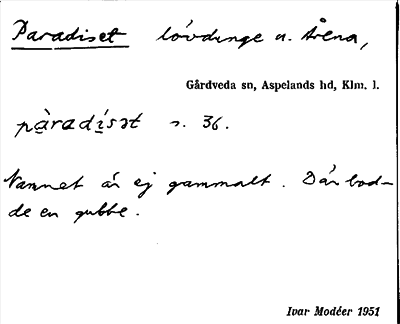 Paradiset lövdunge u. Årena,
Gårdveda sn, Aspelands hd, Klm. l.
pàradísət s. 36.
Namnet är ej gammalt. Där bod-
de en gubbe.
Ivar Modéer 1951